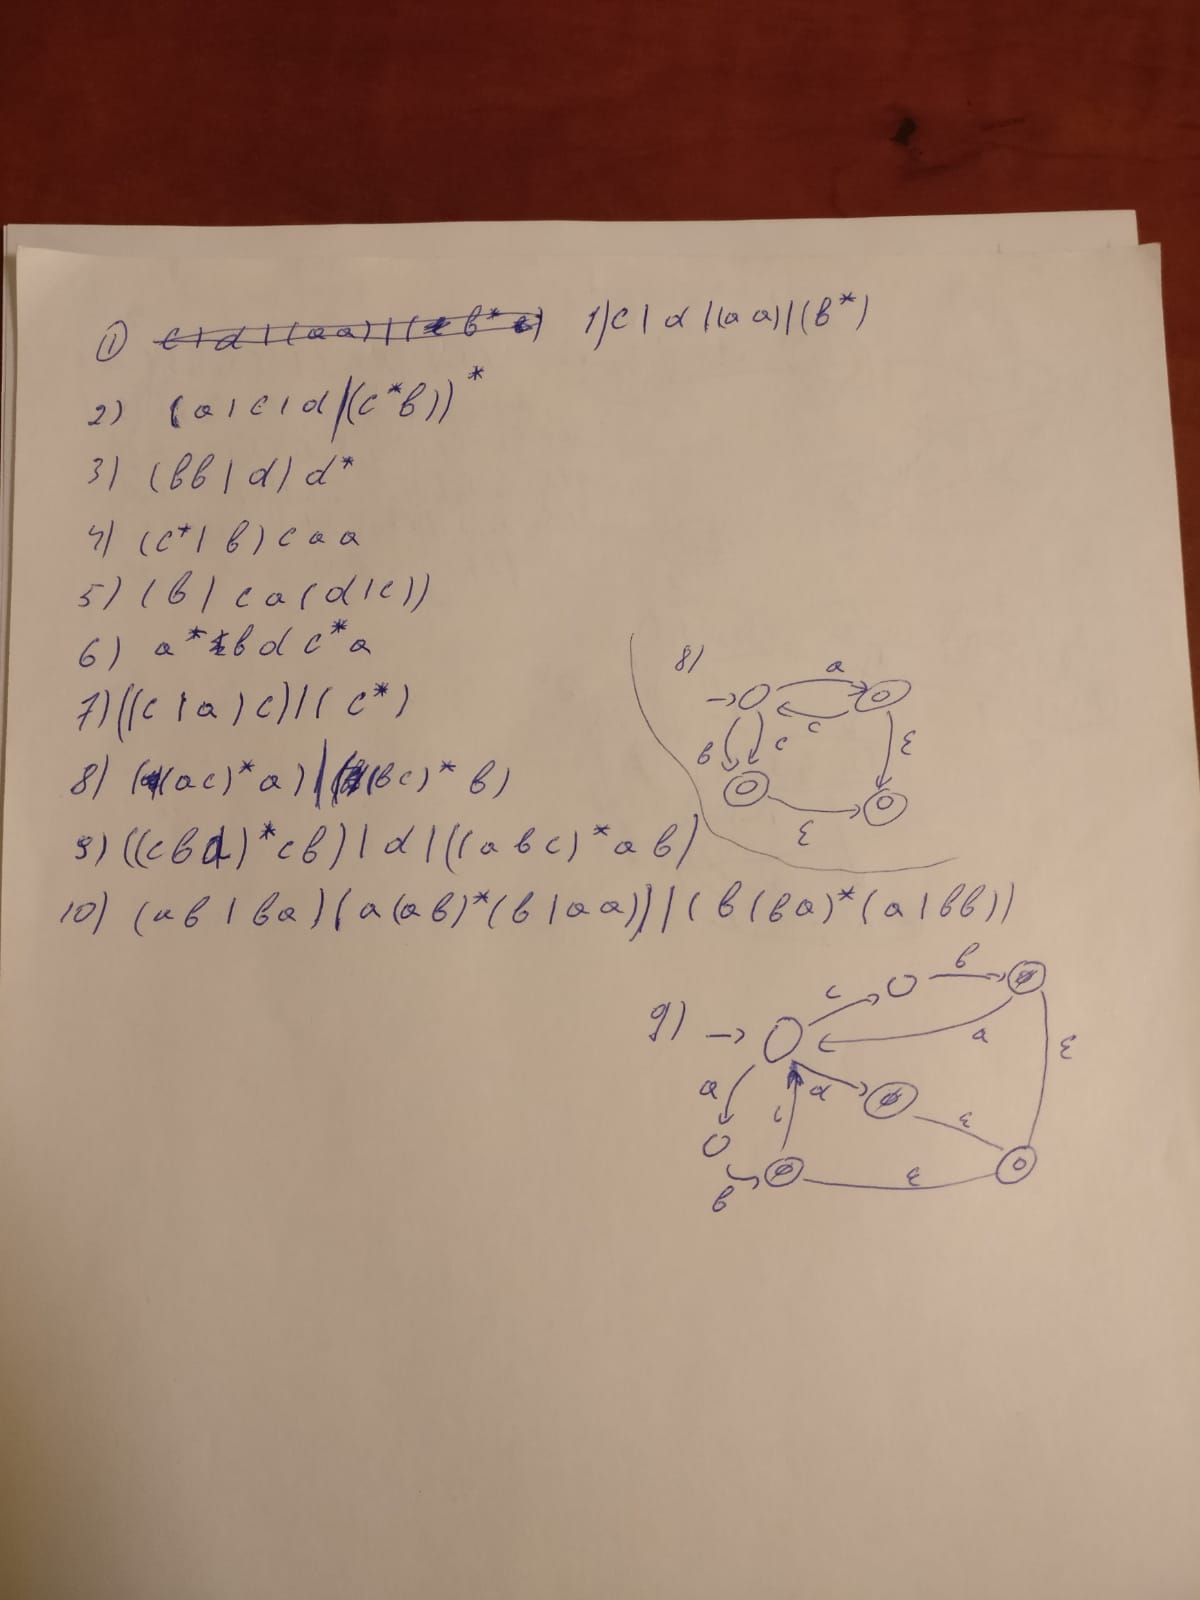 ① c | d | (aa) | ( b* ) 1) c | d | (aa) | (b*)
2) (a | c | d | (c*b))*
3) (bb | d) d*
4) (c* | b) c a a
5) (b | c a (d | c))
6) a* b d c* a
7) ((c | a) c) | (c*)
8) ((ac)* a) | ((bc)* b)
9) ((cbd)* cb) | d | ((abc)* ab)
10) (ab | ba) (a(ab)*(b | aa)) | (b(ba)*(a | bb))
8)
a
c
b c ε
ε
9)
c b
a ε
a c d
ε
b ε